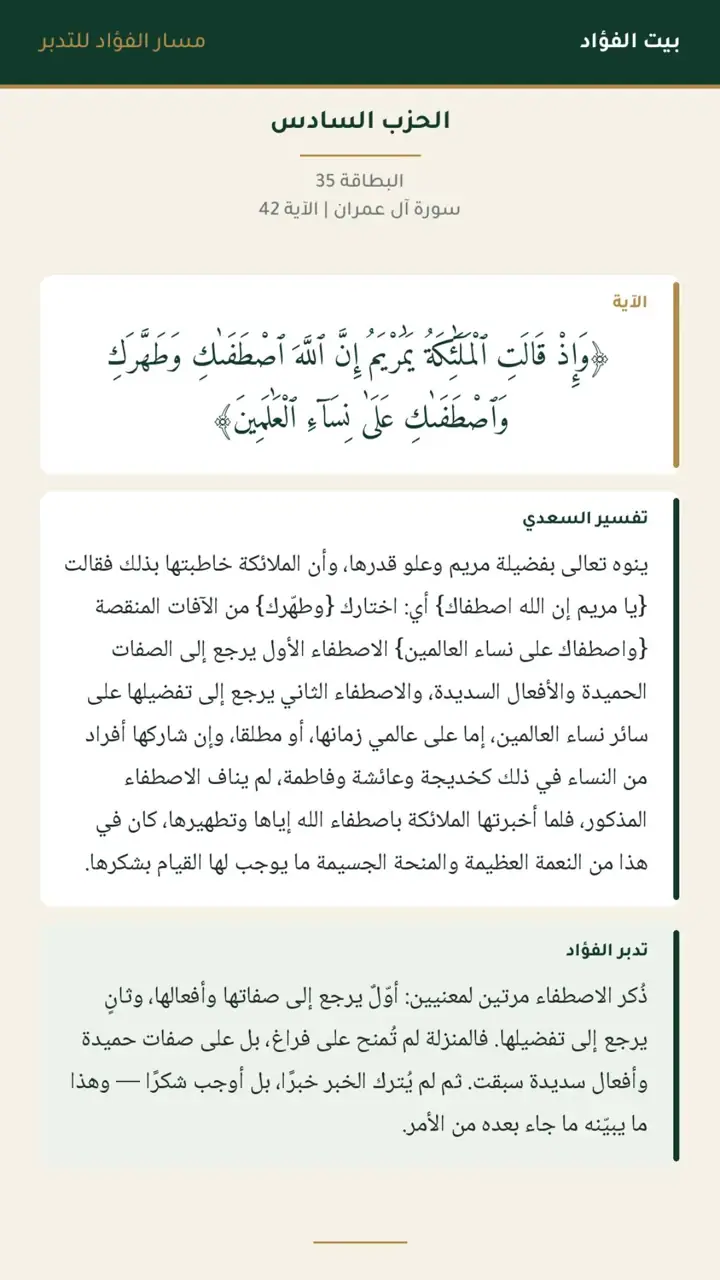 بيت الفؤاد
مسار الفؤاد للتدبر
الحزب السادس
البطاقة 35
سورة آل عمران | الآية 42
الآية
﴿وَإِذْ قَالَتِ ٱلْمَلَٰٓئِكَةُ يَٰمَرْيَمُ إِنَّ ٱللَّهَ ٱصْطَفَىٰكِ وَطَهَّرَكِ
وَٱصْطَفَىٰكِ عَلَىٰ نِسَآءِ ٱلْعَٰلَمِينَ﴾
تفسير السعدي
ينوه تعالى بفضيلة مريم وعلو قدرها، وأن الملائكة خاطبتها بذلك فقالت
{يا مريم إن الله اصطفاك} أي: اختارك {وطهّرك} من الآفات المنقصة
{واصطفاك على نساء العالمين} الاصطفاء الأول يرجع إلى الصفات
الحميدة والأفعال السديدة، والاصطفاء الثاني يرجع إلى تفضيلها على
سائر نساء العالمين، إما على عالمي زمانها، أو مطلقا، وإن شاركها أفراد
من النساء في ذلك كخديجة وعائشة وفاطمة، لم يناف الاصطفاء
المذكور، فلما أخبرتها الملائكة باصطفاء الله إياها وتطهيرها، كان في
هذا من النعمة العظيمة والمنحة الجسيمة ما يوجب لها القيام بشكرها.
تدبر الفؤاد
ذُكر الاصطفاء مرتين لمعنيين: أوّلٌ يرجع إلى صفاتها وأفعالها، وثانٍ
يرجع إلى تفضيلها. فالمنزلة لم تُمنح على فراغ، بل على صفات حميدة
وأفعال سديدة سبقت. ثم لم يُترك الخبر خبرًا، بل أوجب شكرًا — وهذا
ما يبيّنه ما جاء بعده من الأمر.